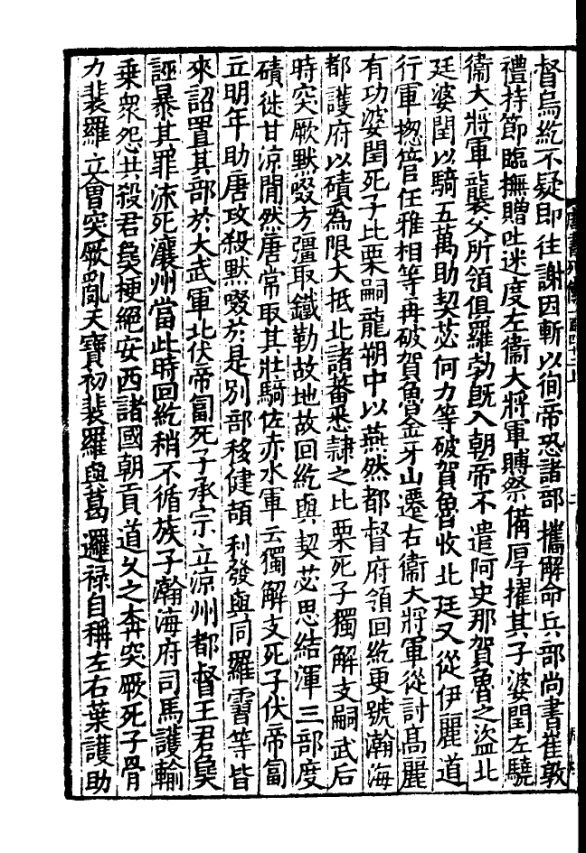 督烏紇不疑即往謝因斬以徇帝恐諸部攜解命兵部尚書崔敦
禮持節臨撫贈吐迷度左衞大將軍賻祭備厚擢其子婆閏左驍
衞大將軍襲父所領俱羅勃旣入朝帝不遣阿史那賀魯之盜北
廷婆閏以騎五萬助契苾何力等破賀魯收北廷又從伊麗道
行軍揔管任雅相等再破賀魯金牙山遷右衞大將軍從討髙麗
有功婆閏死子比栗嗣龍朔中以燕然都督府領回紇更號瀚海
都護府以磧為限大抵北諸蕃悉隷之比栗死子獨解支嗣武后
時突厥默啜方彊取鐵勒故地故回紇與契苾思結渾三部度
磧徙甘涼閒然唐常取其壯騎佐赤水軍云獨解支死子伏帝匐
立明年助唐攻殺默啜於是別部移健頡利發與同羅霫等皆
來詔置其部於大武軍北伏帝匐死子承宗立涼州都督王君㚟
誣暴其罪流死瀼州當此時回紇稍不循族子瀚海府司馬護輸
乗衆怨共殺君㚟梗絕安西諸國朝貢道久之奔突厥死子骨
力裴羅立會突厥亂天寶初裴羅與葛邏禄自稱左右葉護助